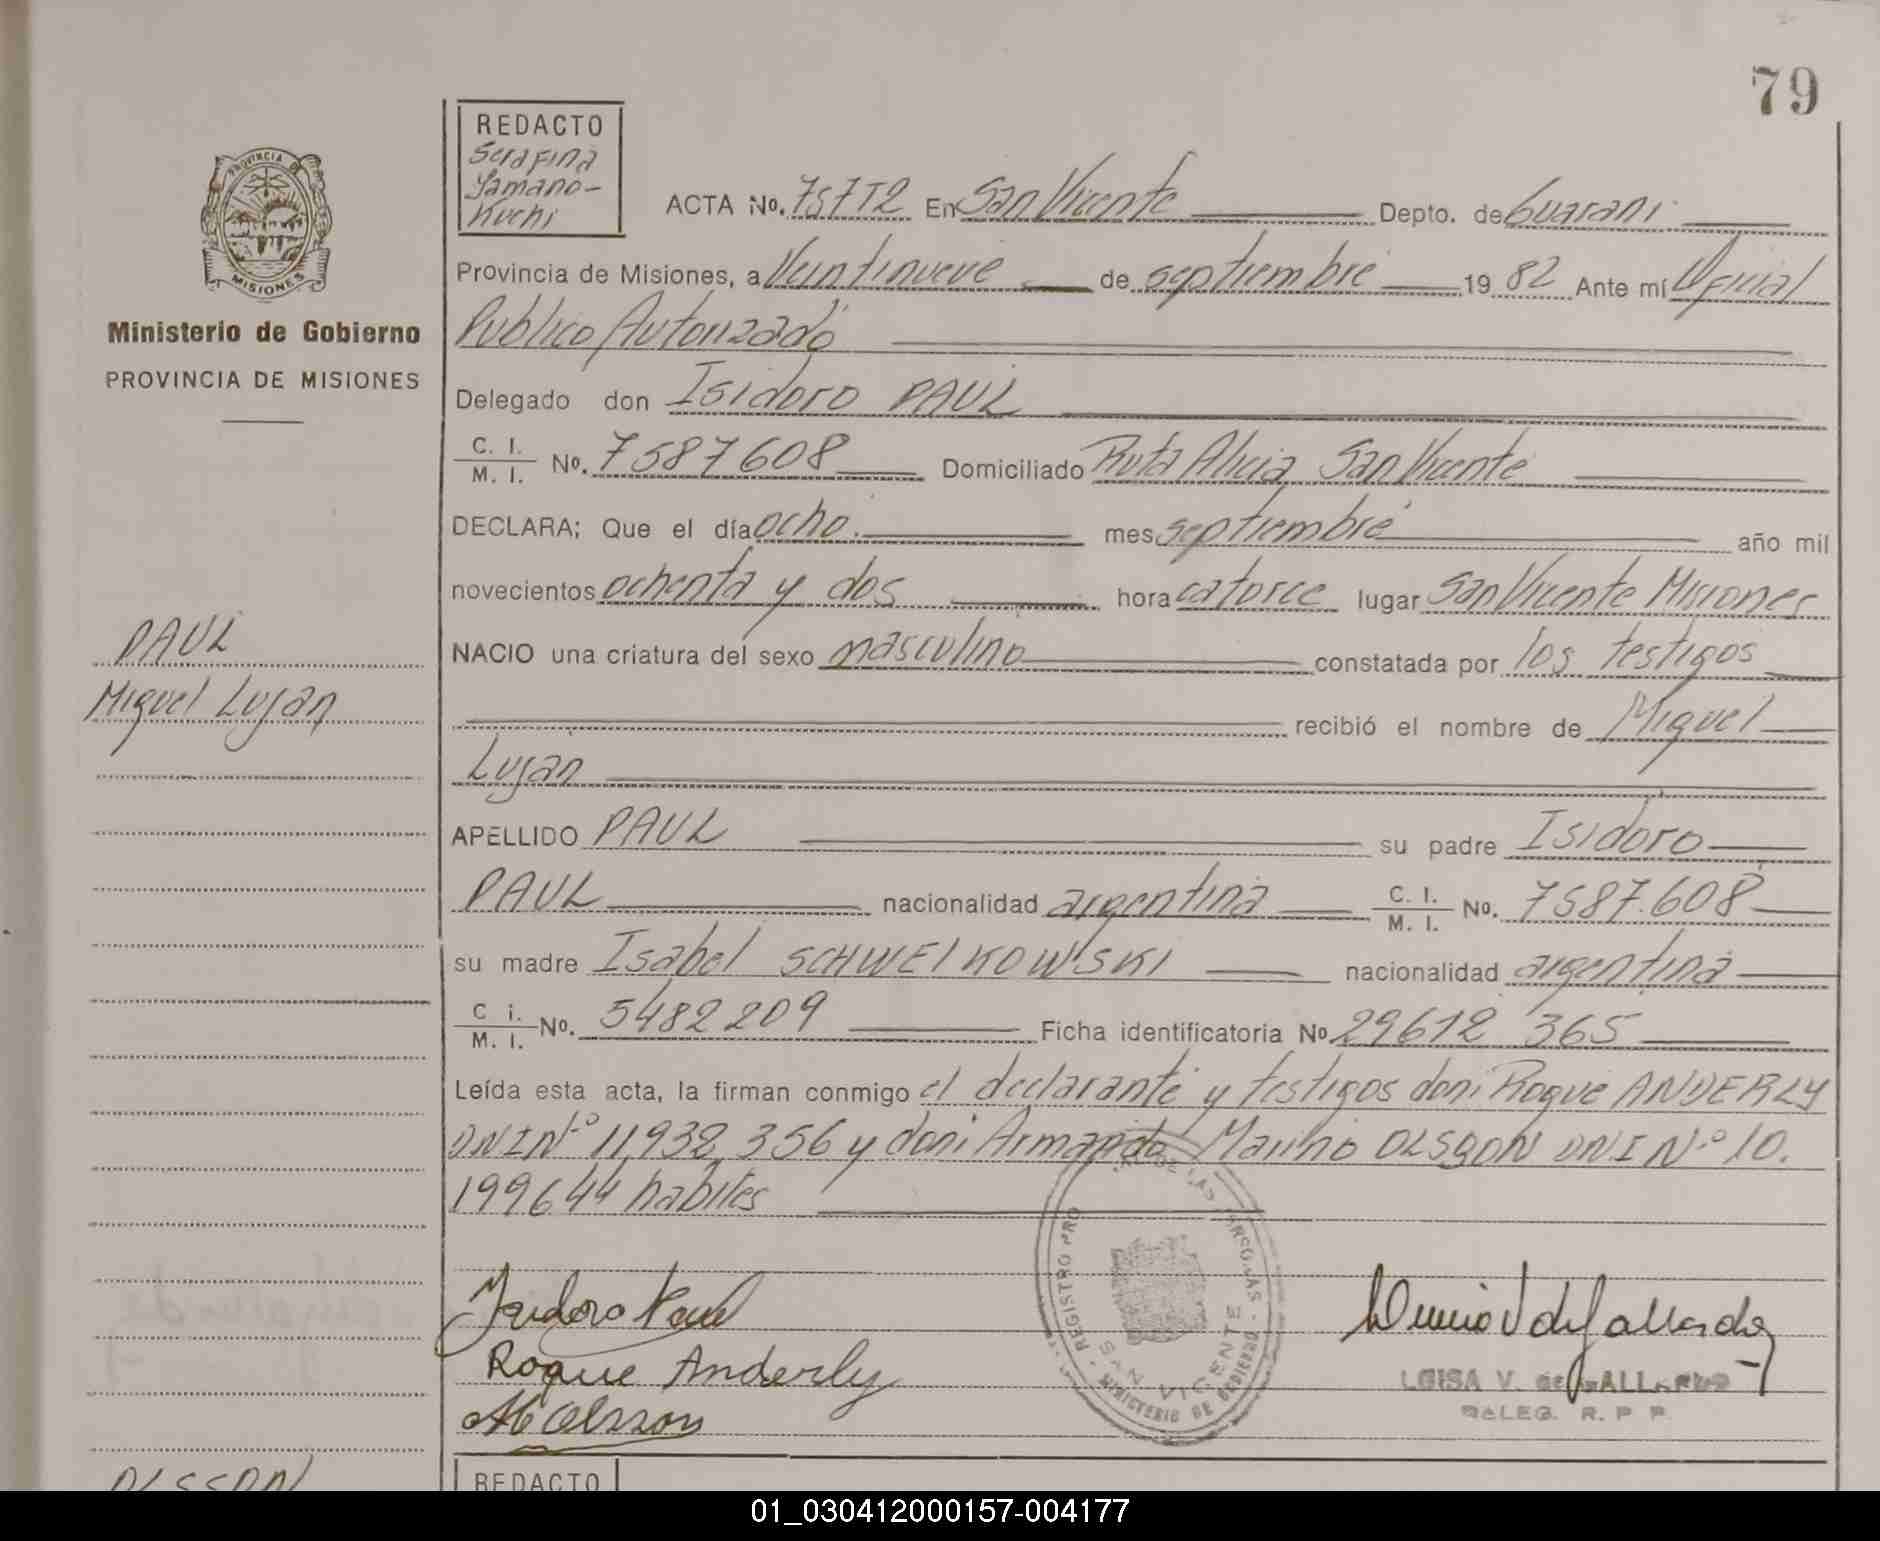 79
REDACTO
Serafina
Yamano-
Kuchi
PROVINCIA DE
MISIONES
Ministerio de Gobierno
PROVINCIA DE MISIONES
ACTA No. 757T2 En San Vicente Depto. de Guarani
Provincia de Misiones, a Veintinueve de septiembre 1982 Ante mí Oficial
Publico Autorizado
Delegado don Isidoro PAUL
C. I. / M. I. No. 7587608 Domiciliado Ruta Alicia San Vicente
DECLARA; Que el día ocho. mes septiembre año mil
novecientos ochenta y dos hora catorce lugar San Vicente Misiones
PAUL
NACIO una criatura del sexo masculino constatada por los testigos
Miguel Lujan
recibió el nombre de Miguel
Lujan
APELLIDO PAUL su padre Isidoro
PAUL nacionalidad argentina C. I. / M. I. No. 7587.608
su madre Isabel SCHWEIKOWSKI nacionalidad argentina
C i. / M. I. No. 5482209 Ficha identificatoria No 29612 365
Leída esta acta, la firman conmigo el declarante y testigos don: Roque ANDERLY
DNI Nº 11,932,356 y don: Armando Marino OLSSON DNI Nº 10.
199644 habiles
Isidoro Paul
Roque Anderly
Olsson
REGISTRO PRO DE LAS PERSONAS
SAN VICENTE
MINISTERIO DE GOBIERNO
V de Gallardo
LUISA V. de GALLARDO
DELEG. R. P. P.
OLSSON
REDACTO
01_030412000157-004177